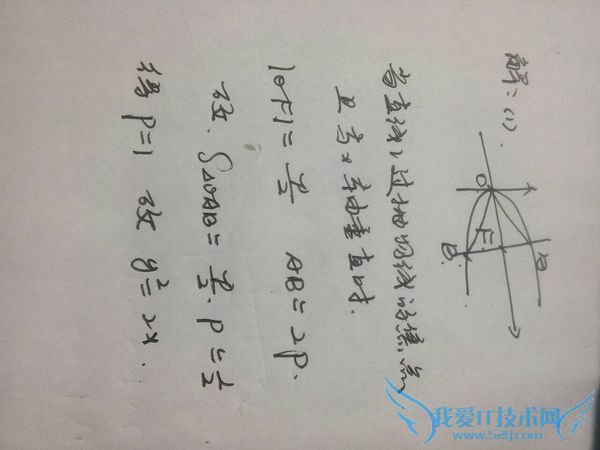 解:(1).
O
F
A
B
当直线l过抛物线的焦点
且与x轴垂直时.
|OF|=p/2 AB=2p.
故.S△OAB=p/2·p=1/2
得p=1 故y²=2x.
我爱IT技术网
www.52ij.com